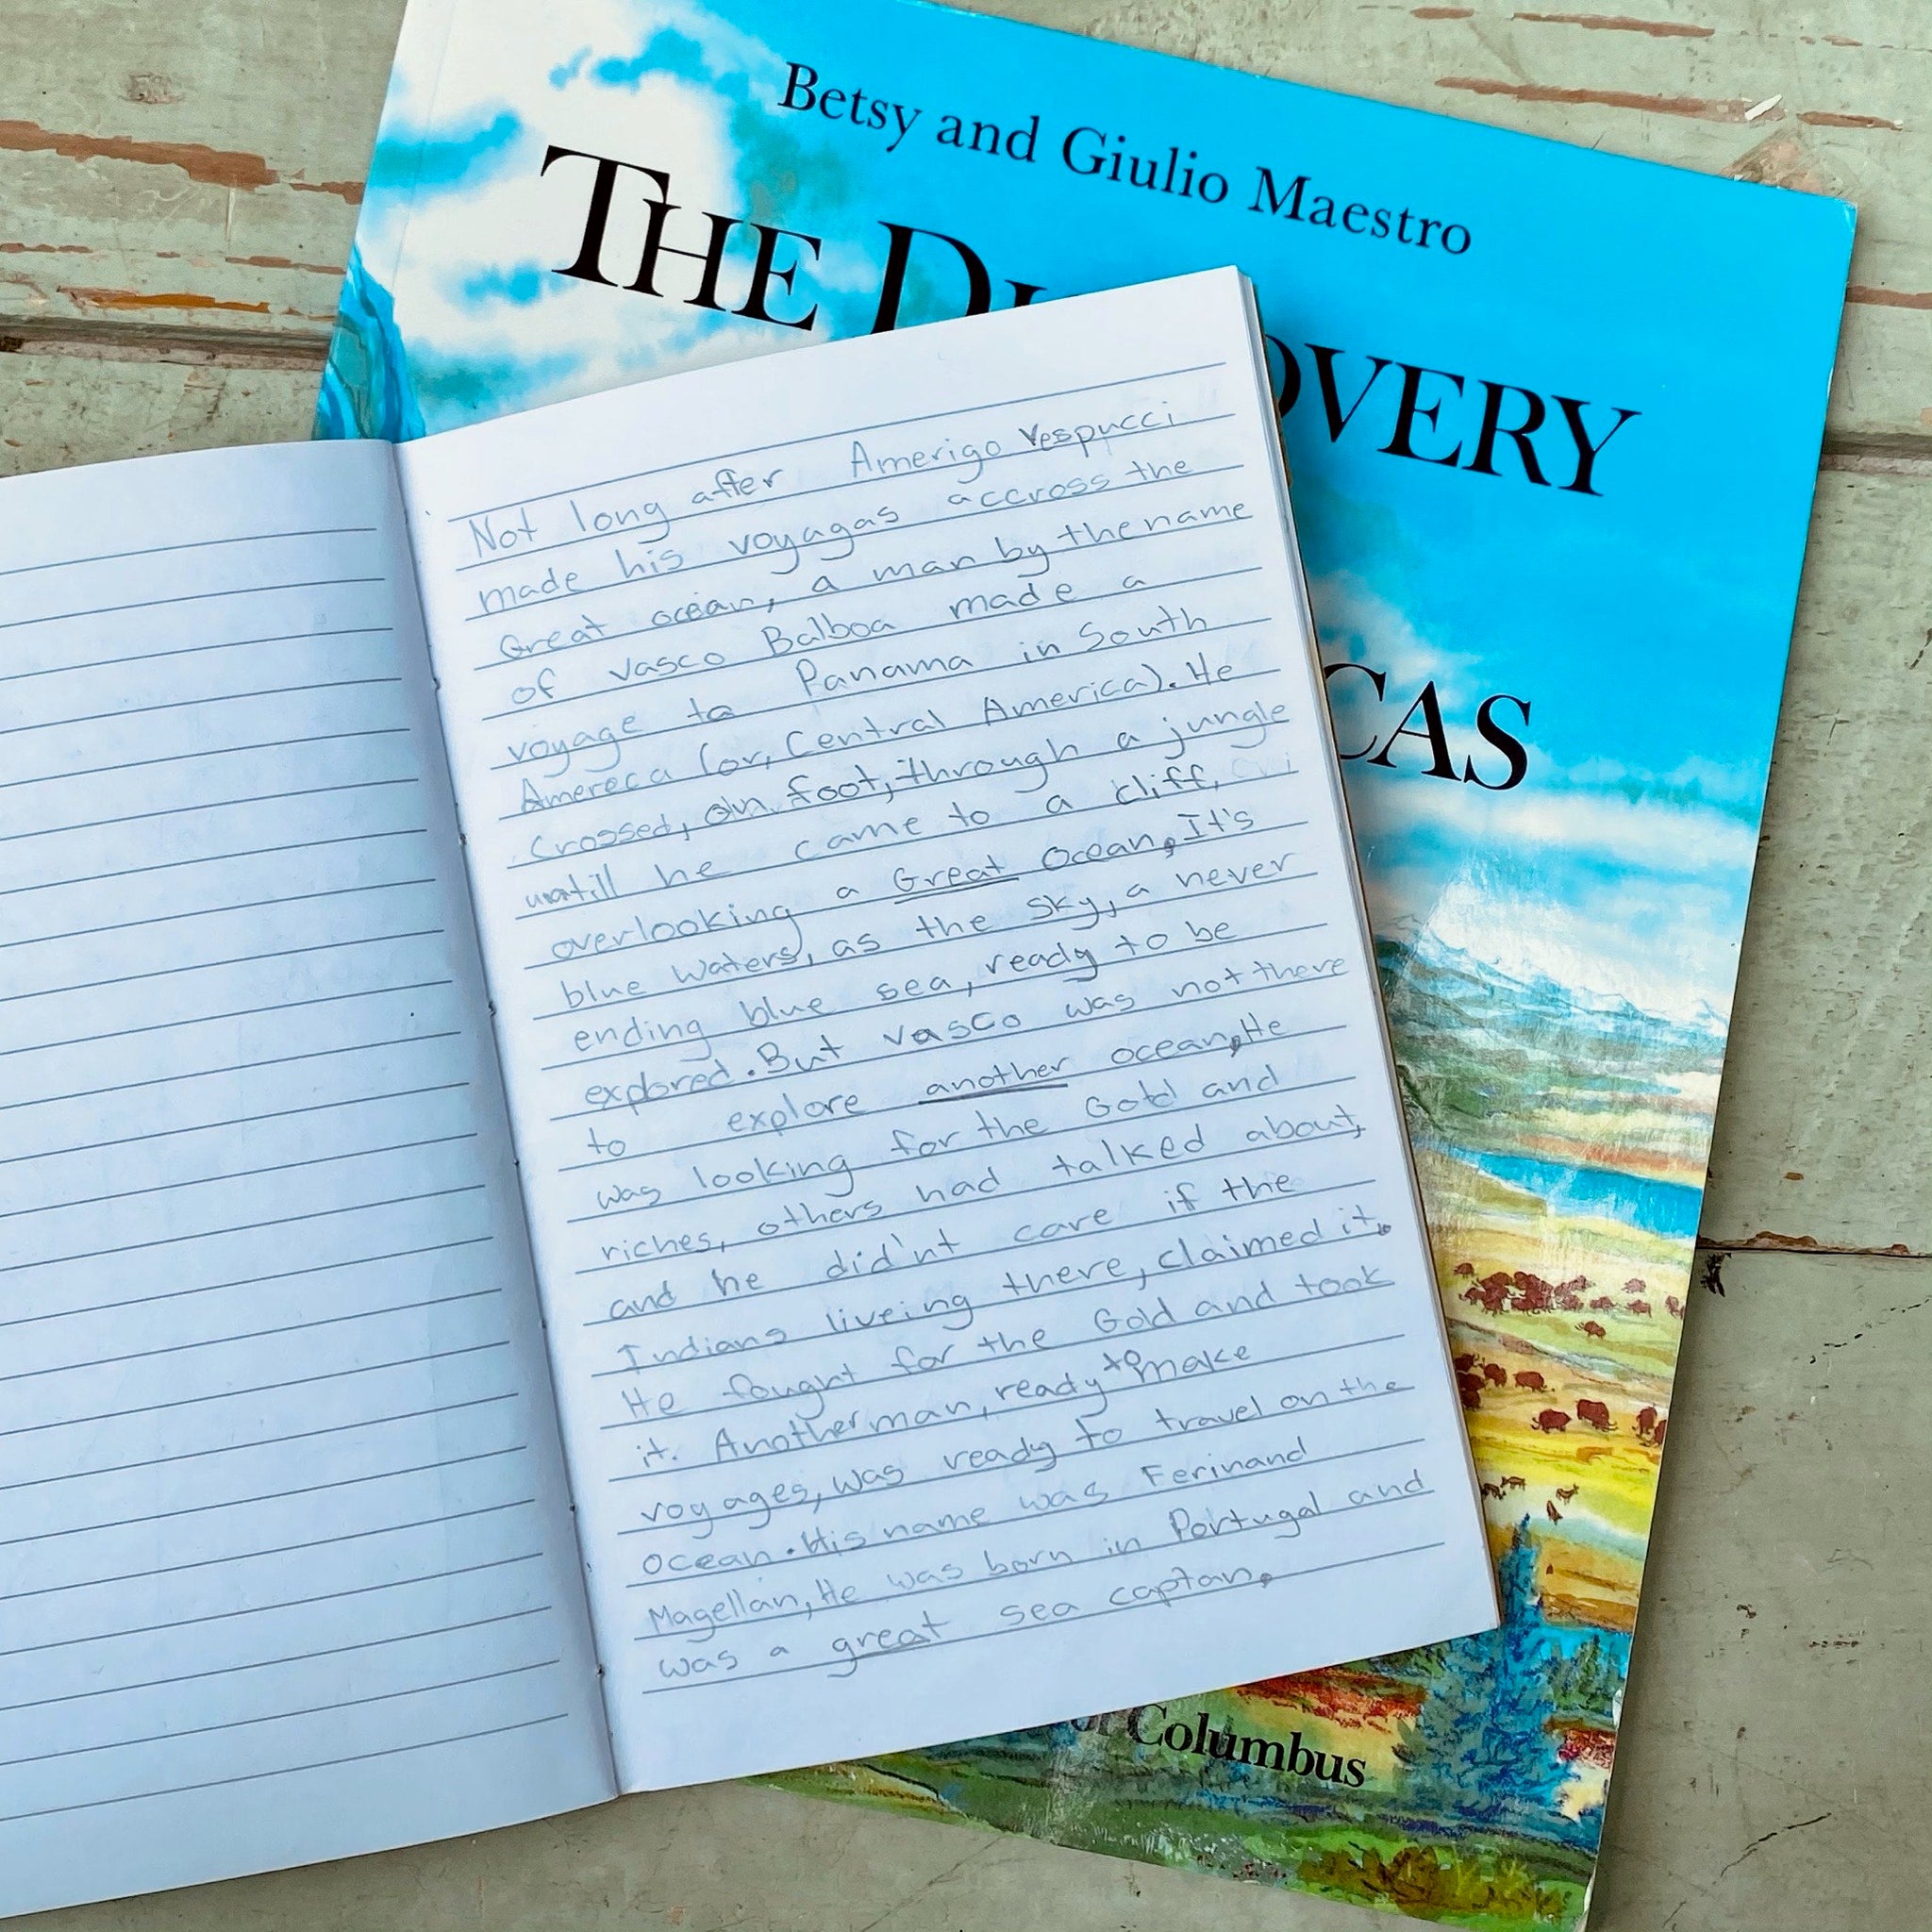 Betsy and Giulio Maestro
THE DI OVERY
CAS
Not long after Amerigo Vespucci
made his voyagas accross the
Great ocean, a man by the name
of Vasco Balboa made a
voyage to Panama in South
Amereca (or, Central America). He
Crossed, on foot, through a jungle
untill he came to a cliff,
overlooking a Great Ocean, It's
blue waters, as the sky, a never
ending blue sea, ready to be
explored. But Vasco was not there
to explore another ocean, He
was looking for the Gold and
riches, others had talked about,
and he did'nt care if the
Indians liveing there, claimed it.
He fought for the Gold and took
it. Another man, ready to make
voyages, was ready to travel on the
ocean. His name was Ferinand
Magellan, He was born in Portugal and
was a great sea captan.
of Columbus